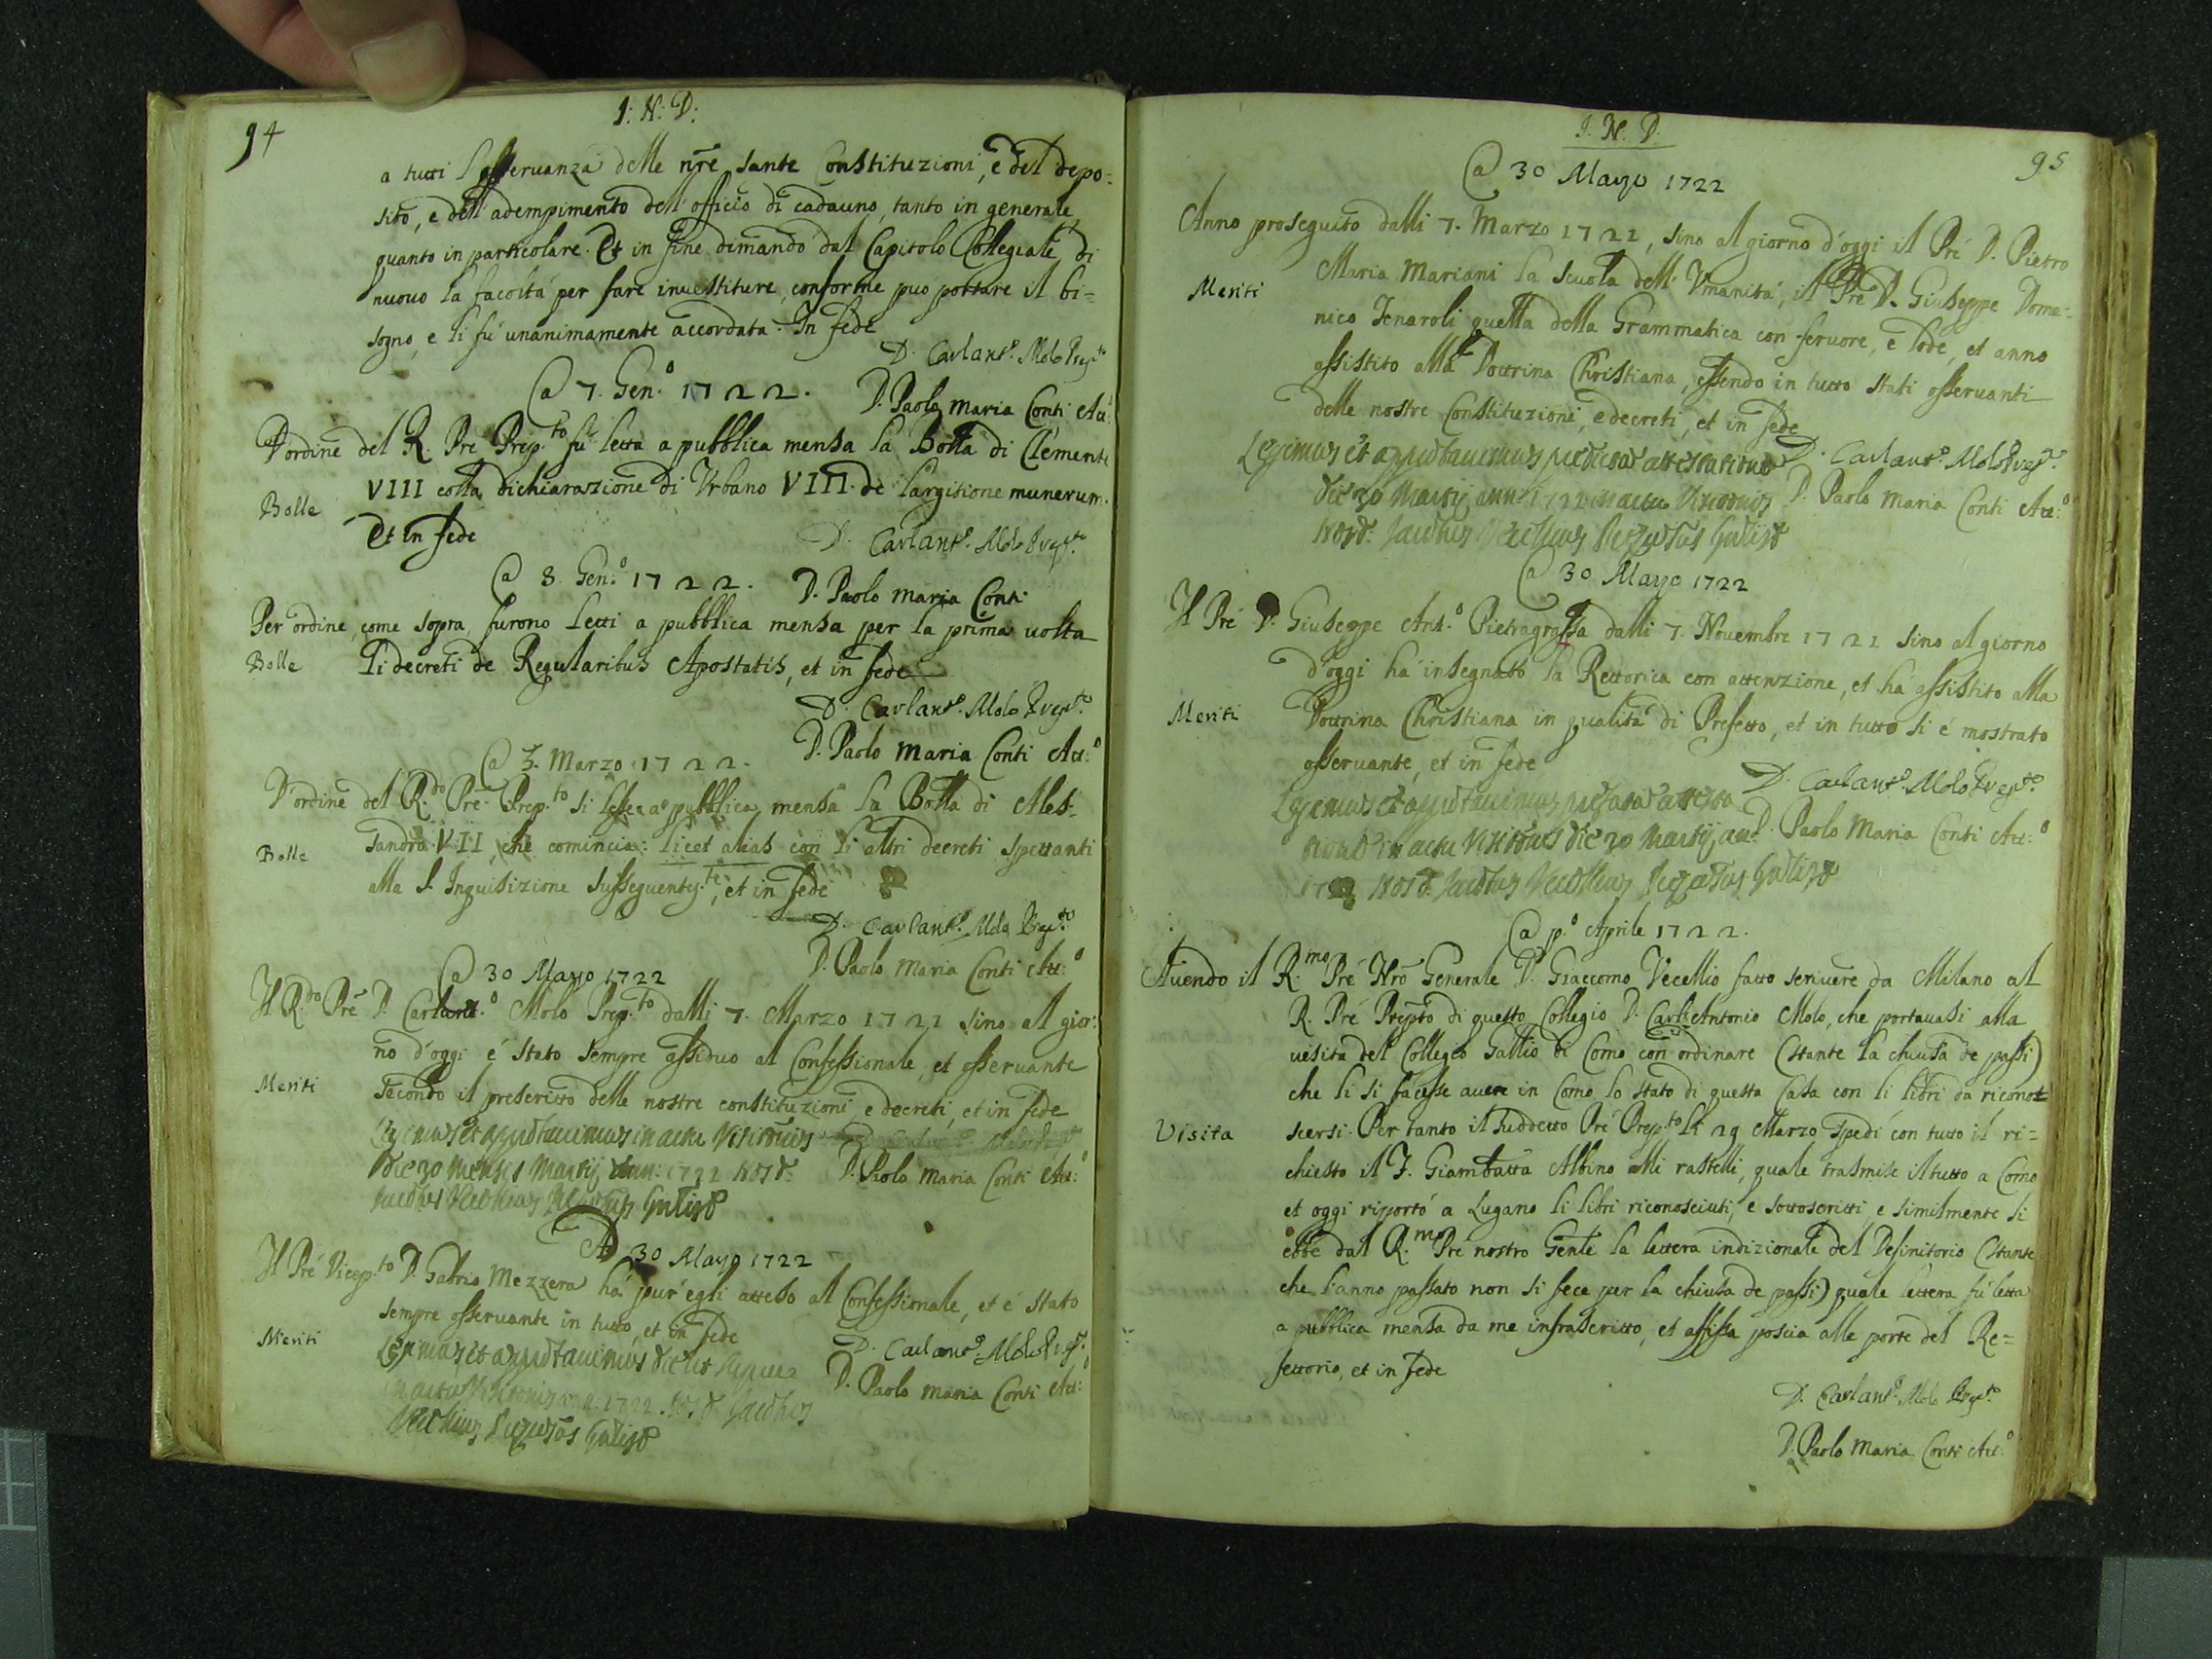 94
I: N: D:
a tutti l'osservanza delle nr̃e sante Constituzioni, e del depo:
sito, e dell'adempimento dell'officio di cadauno, tanto in generale,
quanto in particolare. Et in fine dimandò dal Capitolo Collegiale di
nuovo la facoltà per fare investiture, conforme può portare il bi=
sogno, e li fù unanimamente accordata. In fede
D. Carlant.º Molo Prep.to
@ 7. Gen.º 1722.
D. Paolo Maria Conti Att.º
D'ordine del R. Pre Prep.to fù letta a pubblica mensa la Bolla di Clemente
VIII colla dichiarazione di Urbano VIII. de largitione munerum.
Bolle
Et in fede
D. Carlant.º Molo Prep.to
@ 8. Gen.º 1722.
D. Paolo Maria Conti
Per ordine, come sopra, furono letti a pubblica mensa per la prima volta
Bolle
li decreti de Regularibus Apostatis, et in fede
D. Carlant.º Molo Prep.to
D. Paolo Maria Conti Att.º
@ 3. Marzo 1722.
D'ordine del R.do Pre Prep.to si lesse a pubblica mensa la Bolla di Ales-
sandro VII, che comincia: licet alias con li altri decreti spettanti
Bolle
alla S. Inquisizione susseguentem.te, et in fede
D. Carlant.º Molo Prep.to
D. Paolo Maria Conti Att.º
@ 30 Marzo 1722
Il R.do Pre D. Carlant.º Molo Prep.to dalli 7. Marzo 1721 sino al gior:
no d'oggi è stato sempre assiduo al Confessionale, et osservante
Meriti
secondo il prescritto delle nostre constituzioni, e decreti, et in fede
Legimus et approbavimus in actu Visitõnis
die 30 Mensis Martij Ann: 1722 Nos D.
D. Paolo Maria Conti Att:º
Jacobus Vecellius
A 30 Marzo 1722
Il Pre Vicep.to D. Gabrio Mezzera hà pur'egli atteso al Confessionale, et è stato
sempre osservante in tutto, et in fede
Meriti
D. Carlant.º Molo Prep.to
Legimus, et approbavimus die ut supra
D. Paolo Maria Conti Att:º
in actu Visitõnis 1722. Nos D. Jacobus
Vecellius
I. N. D.
95
@ 30 Marzo 1722
Anno proseguito dalli 7. Marzo 1721, sino al giorno d'oggi il Pré D. Pietro
Maria Mariani la scuola dell'Umanità, il Pré D. Giuseppe Dome-
Meriti
nico Tenaroli quella della Grammatica con fervore, e lode, et anno
assistito alla Dottrina Christiana, essendo in tutto stati osservanti
delle nostre Constituzioni, e decreti, et in fede
D. Carlant.º Molo Prep.to
Legimus et approbavimus attestationes
die 30 Martij ann. 1722 in actu Visitõnis
D. Paolo Maria Conti Att:º
Nos D. Jacobus Vecellius
@ 30 Marzo 1722
Il Pré D. Giuseppe Ant.º Pietragrassa dalli 7. Novembre 1721 sino al giorno
d'oggi hà insegnato la Rettorica con attenzione, et hà assistito alla
Meriti
Dottrina Christiana in qualità di Prefetto, et in tutto si è mostrato
osservante, et in fede
D. Carlant.º Molo Prep.to
Legimus et approbavimus attesta
D. Paolo Maria Conti Att:º
tiones in actu Visitõnis die 30 Martij an.
1722 Nos D. Jacobus Vecellius
@ p.º Aprile 1722.
Avendo il R.mo Pré Nr̃o Generale D. Giaccomo Vecellio fatto scrivere da Milano al
R. Pré Prep̃to di questo Collegio D. Carl'Antonio Molo, che portavasi alla
visita del Collegio Gallio di Como con ordinare (stante la chiusa de passi)
che li si facesse avere in Como lo stato di questa Casa con li libri da ricono=
Visita
scersi. Per tanto il suddetto Pré Prep.to li 29 Marzo spedì con tutto il ri=
chiesto il F. Giambatta Albino alli rastelli, quale trasmise il tutto a Como
et oggi riportò a Lugano li libri riconosciuti, e sottoscritti, e similmente si
ebbe dal R.mo Pré nostro Gen̄le la lettera indizionale del Definitorio (stante
che l'anno passato non si fece per la chiusa de passi) quale lettera fù letta
a pubblica mensa da me infrascritto, et affissa poscia alle porte del Re=
fettorio, et in fede
D. Carlant.º Molo Prep.to
D. Paolo Maria Conti Att:º